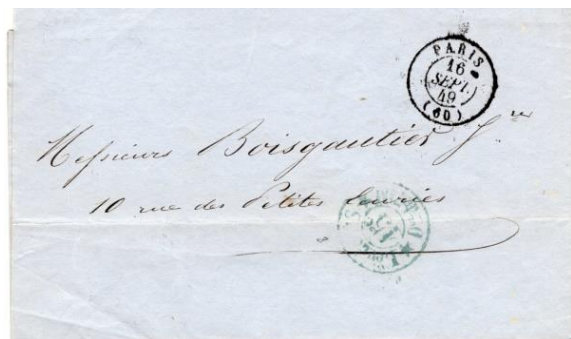 PARIS
16
SEPT.
49
(60)
Messieurs Boisgautier Jne
10 rue des Petites Écuries